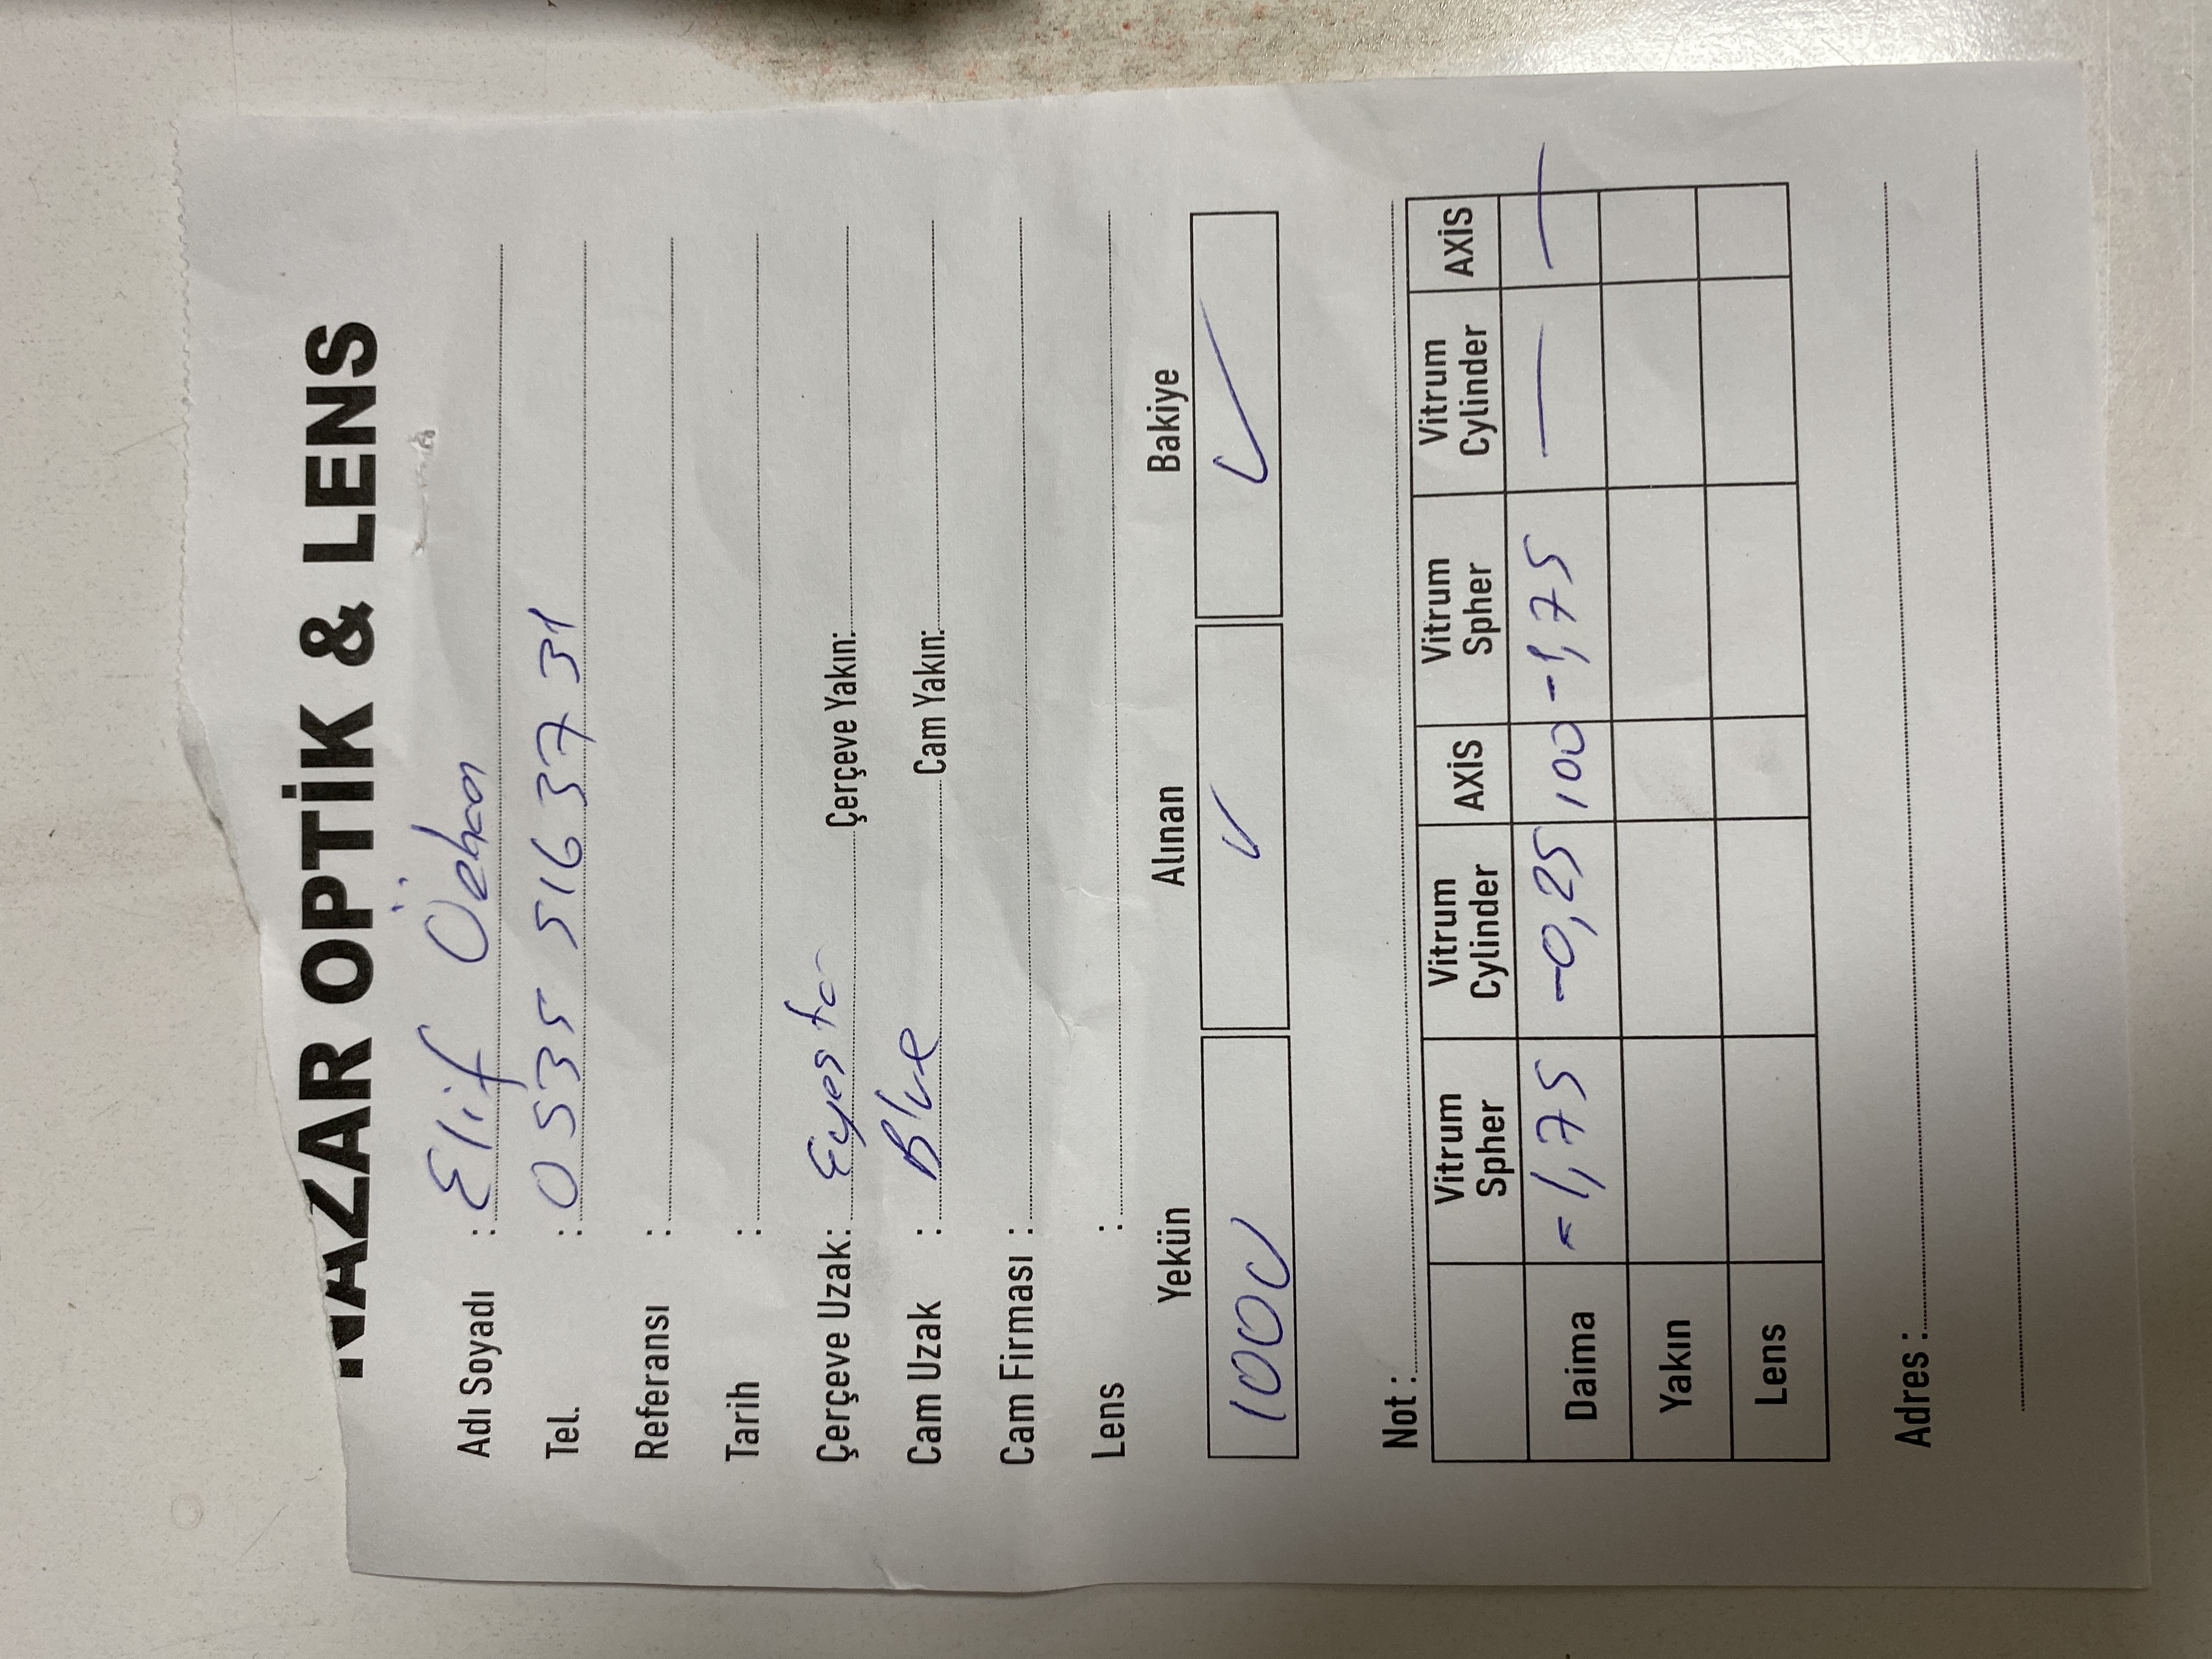 NAZAR OPTİK & LENS
Adı Soyadı : Elif Özhan
Tel. : 0535 516 37 31
Referansı :
Tarih :
Çerçeve Uzak: Eyesta Çerçeve Yakın:
Cam Uzak : Blue Cam Yakın:
Cam Firması :
Lens :
Yekün Alınan Bakiye
1000 ✓ ✓
Not :
Vitrum Spher Vitrum Cylinder AXİS Vitrum Spher Vitrum Cylinder AXİS
Daima -1,75 -0,25 100 -1,75 — —
Yakın
Lens
Adres :